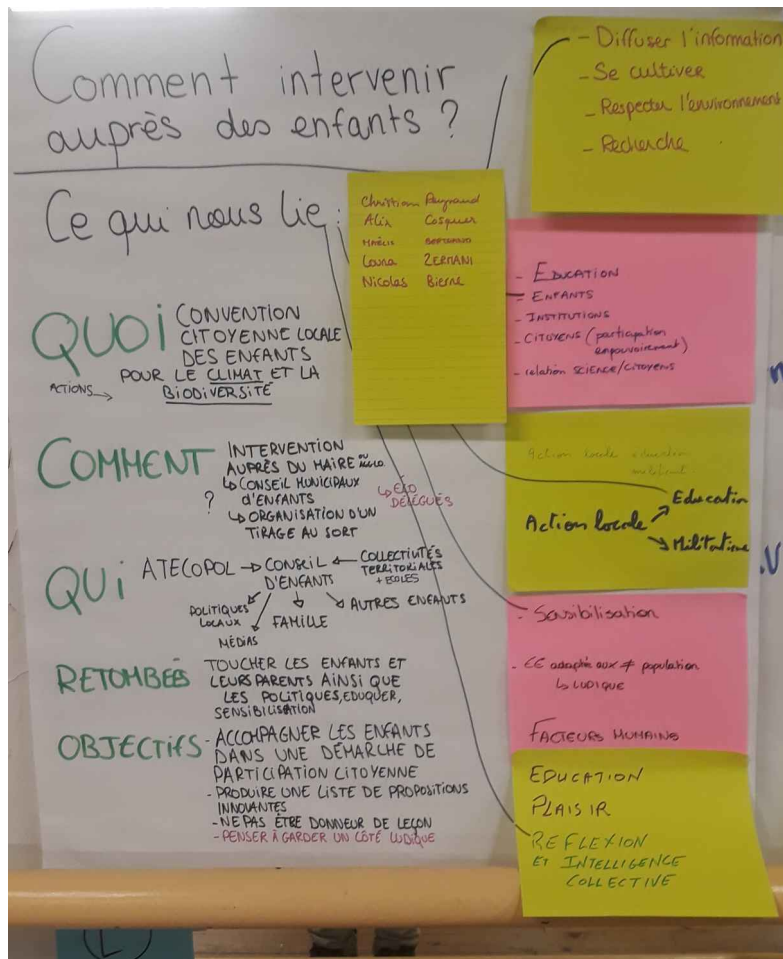 Comment intervenir
auprès des enfants ?
Ce qui nous lie :
QUOI
CONVENTION
CITOYENNE LOCALE
DES ENFANTS
POUR LE CLIMAT ET LA
BIODIVERSITÉ
ACTIONS →
COMMENT
?
INTERVENTION
AUPRÈS DU MAIRE ou
↳ CONSEIL MUNICIPAUX
D'ENFANTS
↳ ORGANISATION D'UN
TIRAGE AU SORT
↳ ÉCO
DÉLÉGUÉS
QUI
ATECOPOL → CONSEIL ← COLLECTIVITÉS
D'ENFANTS
TERRITORIALES
+ ECOLES
POLITIQUES
LOCAUX
MÉDIAS
FAMILLE
AUTRES ENFANTS
RETOMBÉES
TOUCHER LES ENFANTS ET
LEURS PARENTS AINSI QUE
LES POLITIQUES, EDUQUER,
SENSIBILISATION
OBJECTIFS
- ACCOMPAGNER LES ENFANTS
DANS UNE DÉMARCHE DE
PARTICIPATION CITOYENNE
- PRODUIRE UNE LISTE DE PROPOSITIONS
INNOVANTES
- NE PAS ÊTRE DONNEUR DE LEÇON
- PENSER À GARDER UN CÔTÉ LUDIQUE
Christian
Alix Cosquer
Louna ZERMANI
Nicolas Bierne
- Diffuser l'information
- Se cultiver
- Respecter l'environnement
- Recherche
- EDUCATION
- ENFANTS
- INSTITUTIONS
- CITOYENS (participation
empouvoirement)
- relation SCIENCE/CITOYENS
Action locale éducation
Action locale
Education
Militantisme
- Sensibilisation
- CC adaptée aux ≠ population
↳ LUDIQUE
FACTEURS HUMAINS
EDUCATION
PLAISIR
REFLEXION
ET INTELLIGENCE
COLLECTIVE